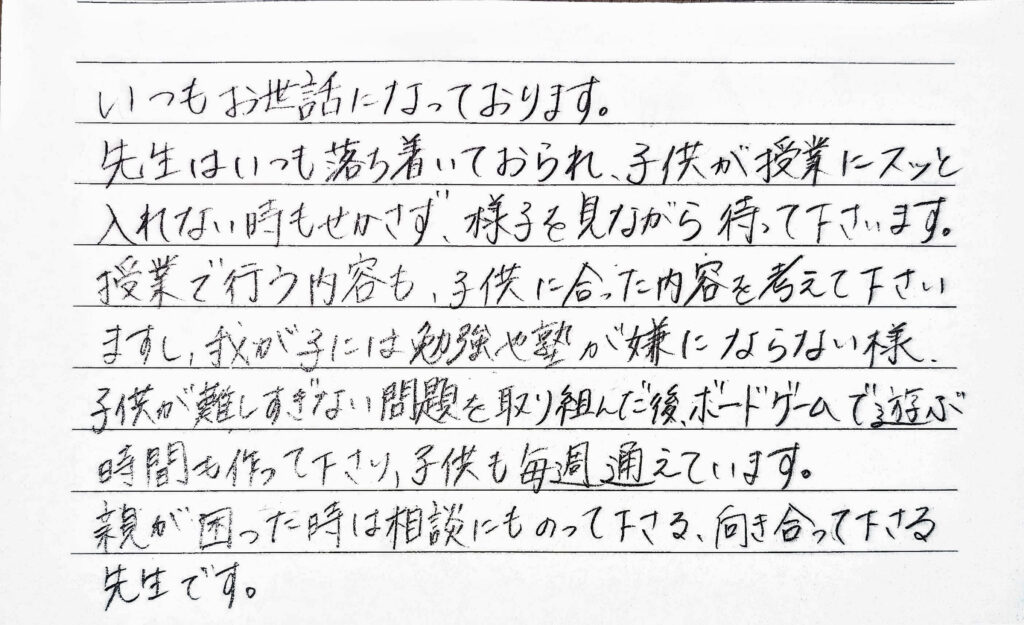 いつもお世話になっております。
先生はいつも落ち着いておられ、子供が授業にスッと
入れない時もせかさず、様子を見ながら待って下さいます。
授業で行う内容も、子供に合った内容を考えて下さい
ますし、我が子には勉強や塾が嫌にならない様、
子供が難しすぎない問題を取り組んだ後、ボードゲームで遊ぶ
時間も作って下さり、子供も毎週通えています。
親が困った時は相談にものって下さる、向き合って下さる
先生です。